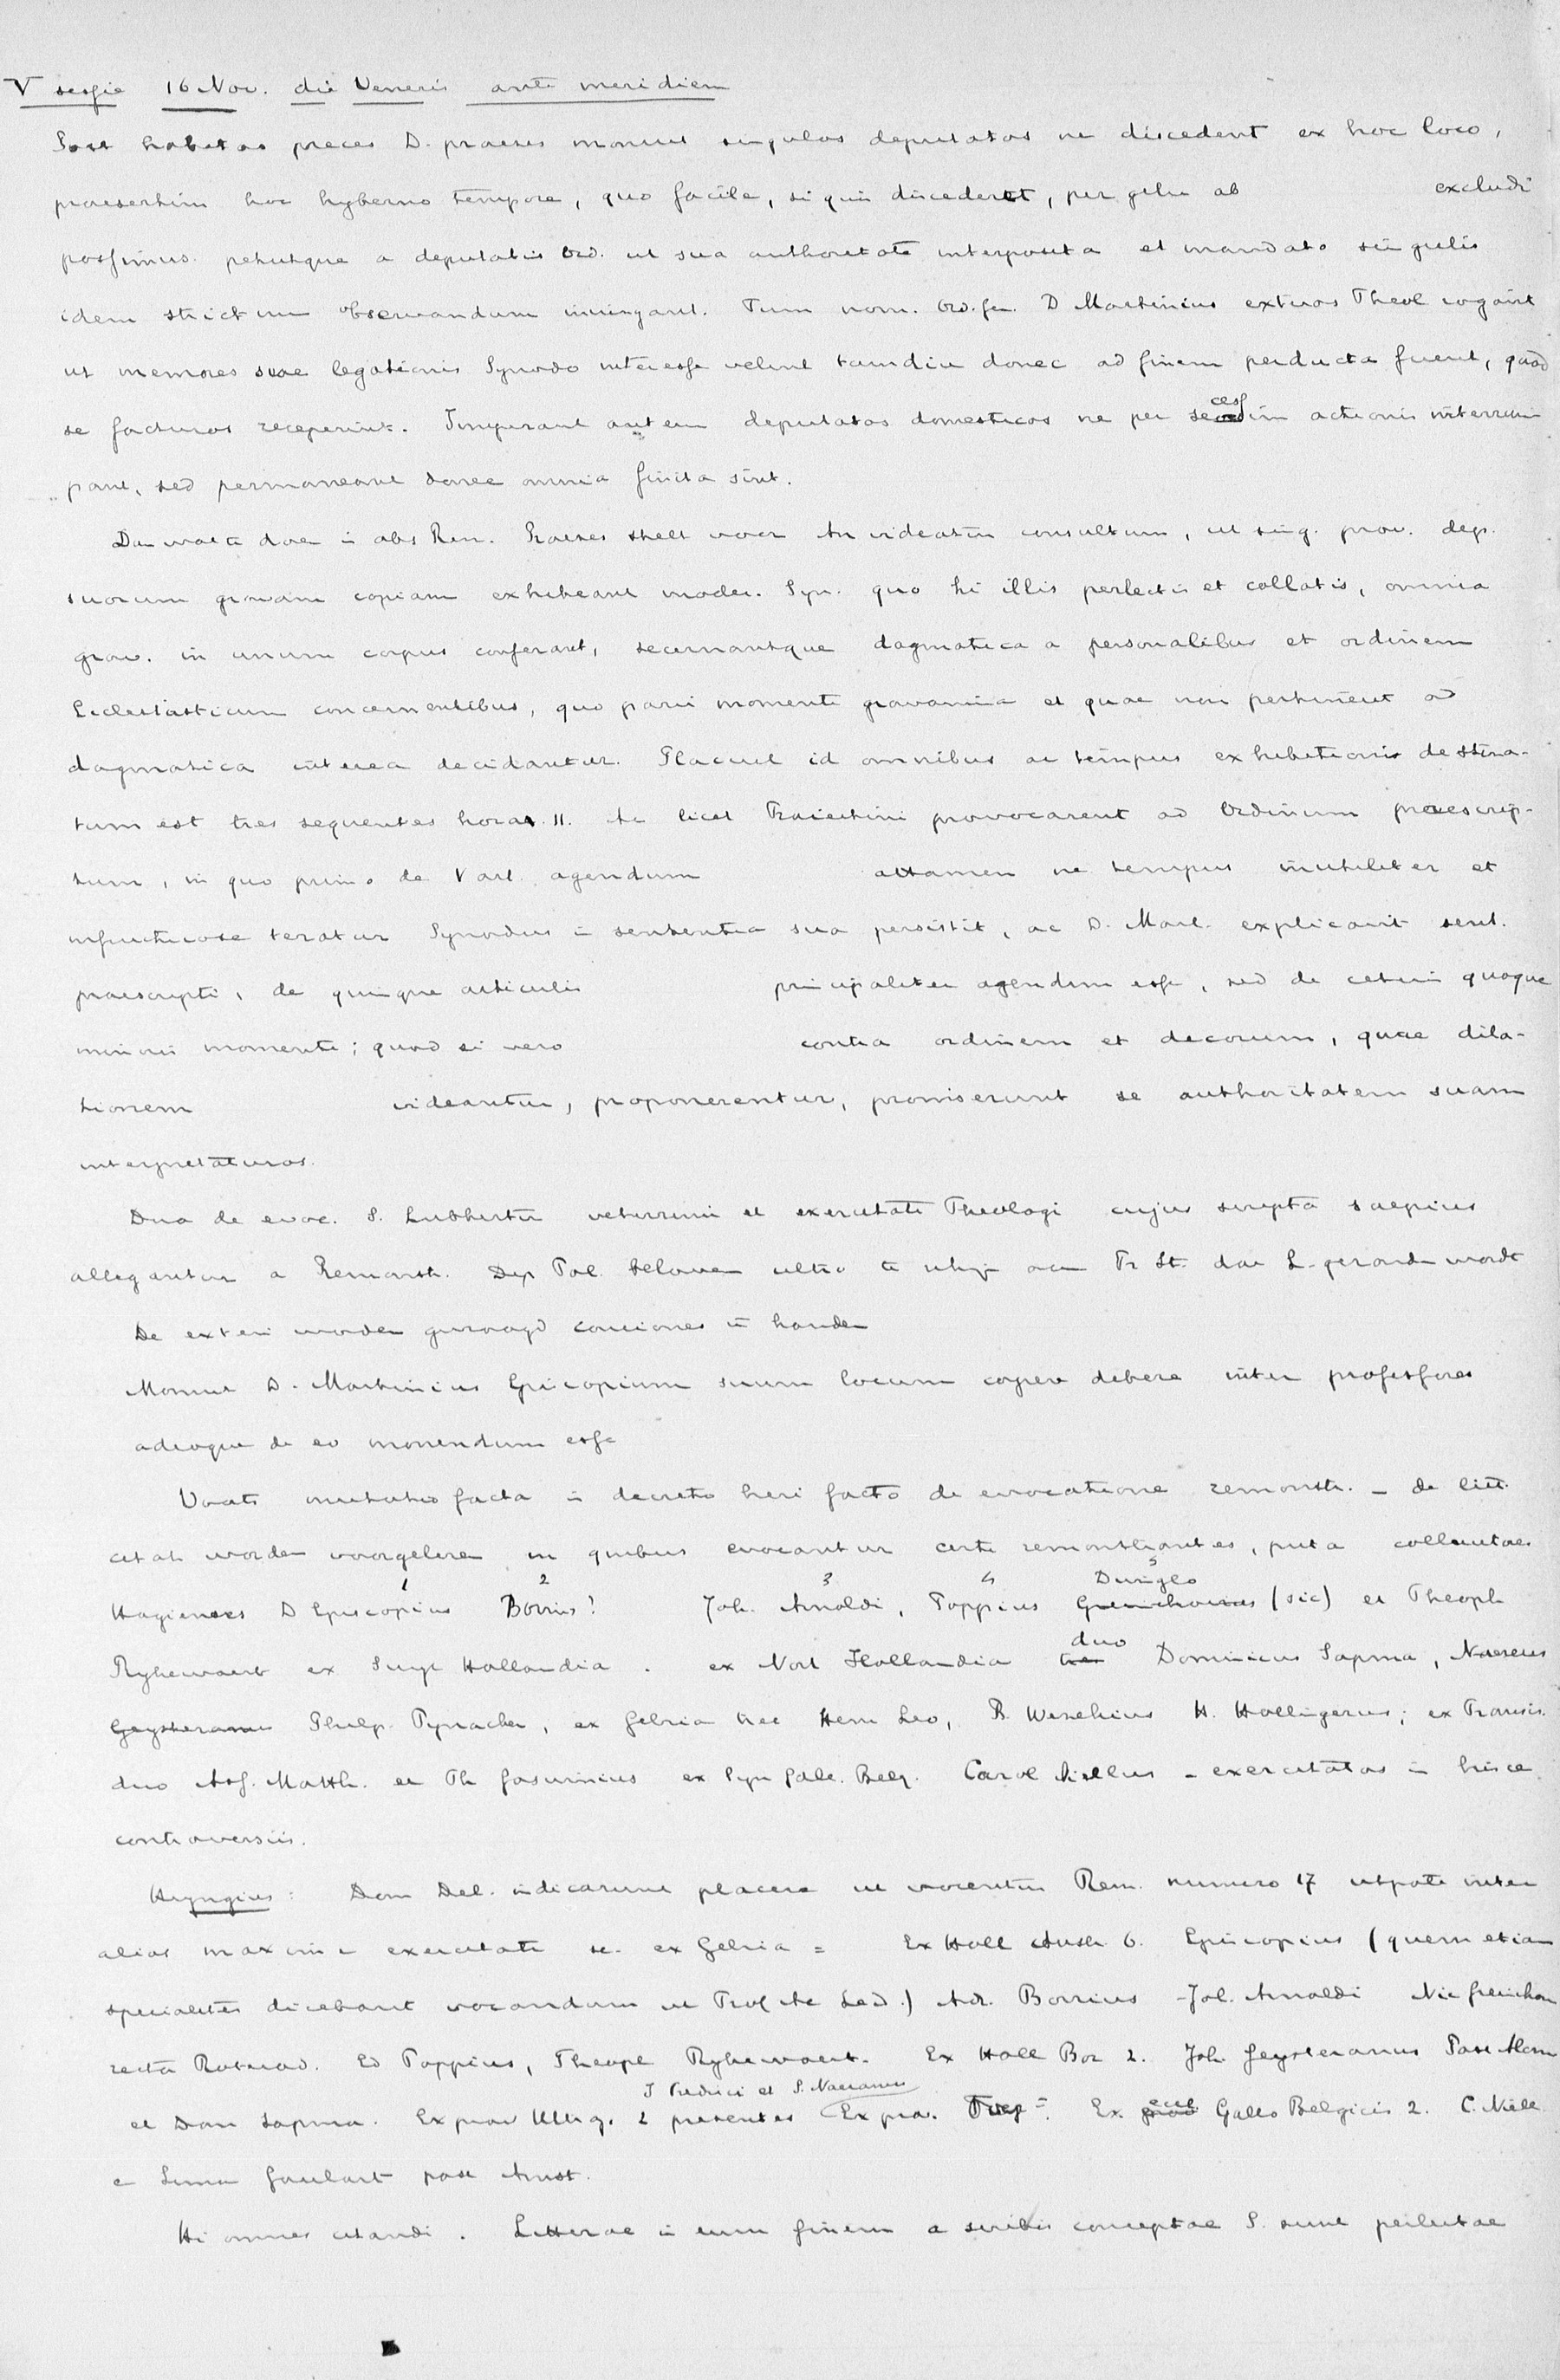 V sessie 16 Nov. die Veneris ante meridiem
Post habitas preces D. praeses monuit singulos deputatos ne discedent ex hoc loco,
praesertim hoc hyberno tempore, quo facile, si quis discederet, per gelu ab excludi
possimus. petuitque a deputatis Ord. ut sua authoritate interposita et mandato singulis
idem strictim observandum iniungant. Tum nom. Ord. gen. D Martinius exteros Theol rogavit
ut memores suae legationis Synodo interesse velint tamdiu donec ad finem perducta fuerit, quod
se facturos receperint. Iniungant autem deputatos domesticos ne per secessim actionis interrum
pant, sed permaneant donec omnia finita sint.
Dan wat te doen in abs Rem. Praeses stelt voor An videatur consultum, ut sing. prov. dep.
suorum gravam copiam exhibeant moder. Syn. quo hi illis perlectis et collatis, omnia
grav. in unum corpus conferant, secernantque dogmatica a personalibus et ordinem
Ecclesiasticum concernentibus, quo parvi momenti gravamina et quae non pertinent ad
dogmatica interea decidantur. Placuit id omnibus ac tempus exhibitionis destina-
tum est tres sequentes horas 11. Ac licet Traiectini provocarent ad Ordinum praescrip-
tum, in quo primo de V art. agendum attamen ne tempus inutiliter et
infructuose teratur Synodus in sententia sua persistit, ac D. Mart. explicavit sent.
praescripti, de quinque articulis principaliter agendum esse, sed de ceteris quoque
minoris momenti; quod si vero contra ordinem et decorum, quae dila-
tionem videantur, proponerentur, promiserunt se authoritatem suam
interpretaturos.
Duo de evoc. S. Lubberti veterrimi et exercitati Theologi cujus scripta saepius
allegantur a Remonstr. Dep Pol. beloven ultro te
De exteri worden gevraagd conciones te houden
Monuit D. Martinius Episcopium suum locum capere debere inter professores
adeoque de eo monendum esse
Vocati mutatio facta in decreto heri facto de evocatione remonstr. - de litt.
citat. worden voorgelezen in quibus evocantur certi remonstrantes, puta collocutores
1 2 3 4 5 Dwinglo
Hagienses D Episcopius Borrius? Joh. Arnoldi, Poppius Grevinchovius (sic) et Theoph
Ryhewaert ex Suyt Hollandia. ex Nort Hollandia tres duo Dominicus Sapma, Naereus
Geysteranus Philp. Pynacker, ex Gelria tres Henr Leo, B. Weselius H. Hollingerus; ex Transis.
duo Ass. Matth. et Th Gosuinius ex Syn Gall. Belg. Carol Niellus - exercitatos in hisce
controversiis.
Heyngius: Dom Del. indicarunt placere ut vocentur Rem. numero 17 utpote inter
alios maxime exercitati sc. ex Gelria = Ex Holl Austr. 6. Episcopius (quem etiam
specialiter dicebant vocandum ut Prof Ac Leid.) Adr. Borrius - Joh. Arnoldi Nic Grevinchov
recta Roterod. Ed Poppius, Theoph Ryhewaert. Ex Holl Bor 2. Joh Geysteranus Past Alcm
J Fredrici et S. Naeranus
et Dom Sapma. Ex prov Ultraj. 2 presentes Ex prov. Ex prov eccl Gallo Belgicis 2. C. Niell.
e Simon Goulart past Amst.
Hi omnes citandi. Litterae in eum finem a scribis conceptae S. sunt perlectae